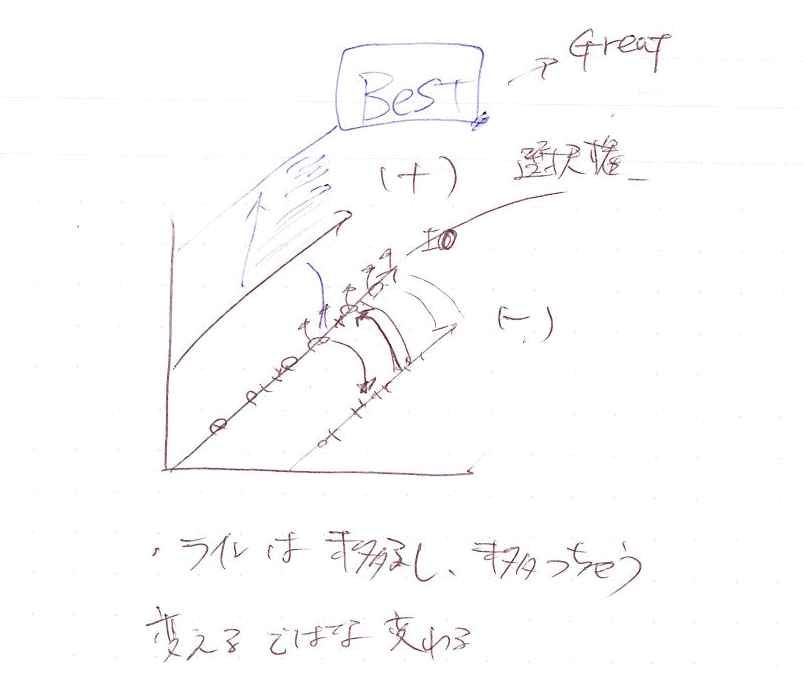 Great
Best
(+)
選択権
(-)
・ライルは移るし、移っちゃう
変えるではな変わる